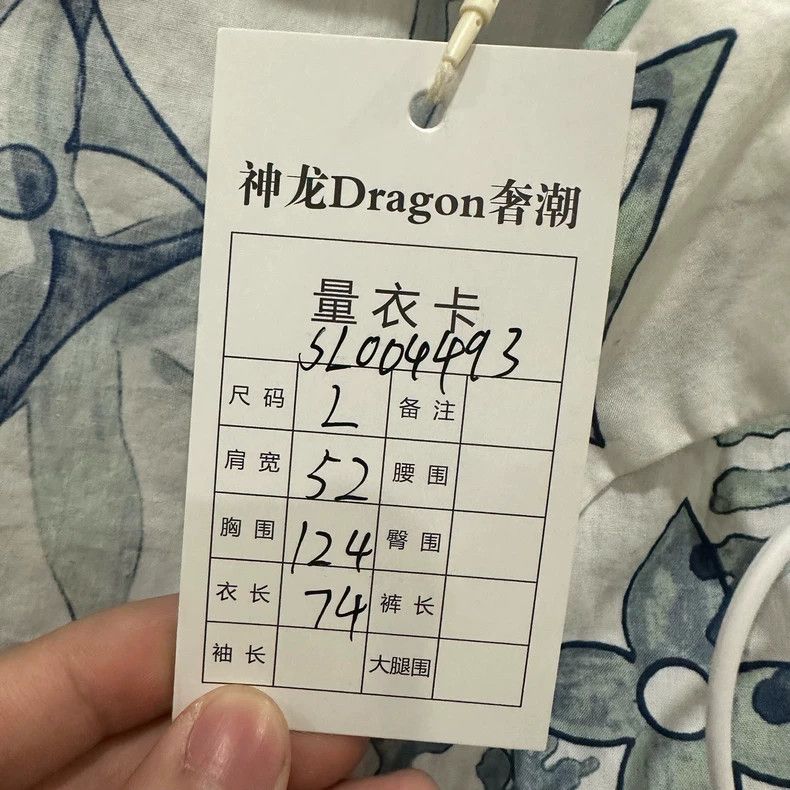 神龙Dragon奢潮
量衣卡
SL004493
尺码 L 备注
肩宽 52 腰围
胸围 124 臀围
衣长 74 裤长
袖长 大腿围